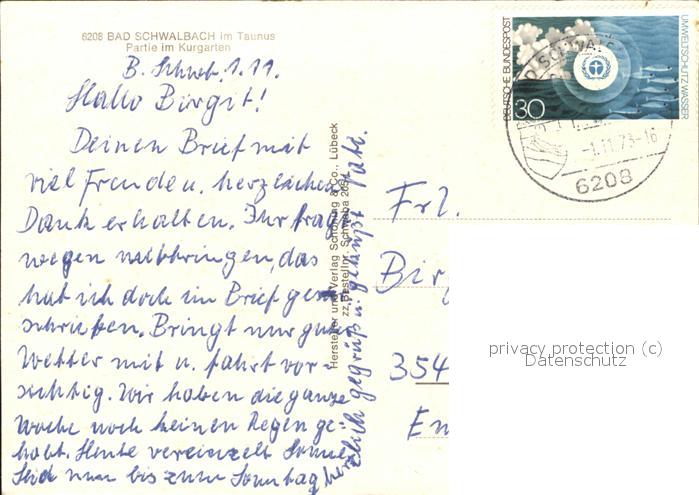 6208 BAD SCHWALBACH im Taunus
Partie im Kurgarten
B. Schwb. 1.11.
Hallo Birgit!
Deinen Brief mit
viel Freude u. herzlichen
Dank erhalten. Ihr fragt
wegen mitbringen, das
hat ich doch im Brief ge
schrieben. Bringt nur gutes
Wetter mit u. fahrt vor-
sichtig. Wir haben die ganze
Woche noch keinen Regen ge-
habt. Heute vereinzelt Sonne.
Seid nun bis zum Sonntag
herzlich gegrüßt u. geküßt
Hersteller und Verlag Schöning & Co., Lübeck
zz Bestellnr. Schwalba
DEUTSCHE BUNDESPOST
30
UMWELTSCHUTZ WASSER
-1.11.73-16
6208
Frl.
Bir
354
privacy protection (c)
Datenschutz